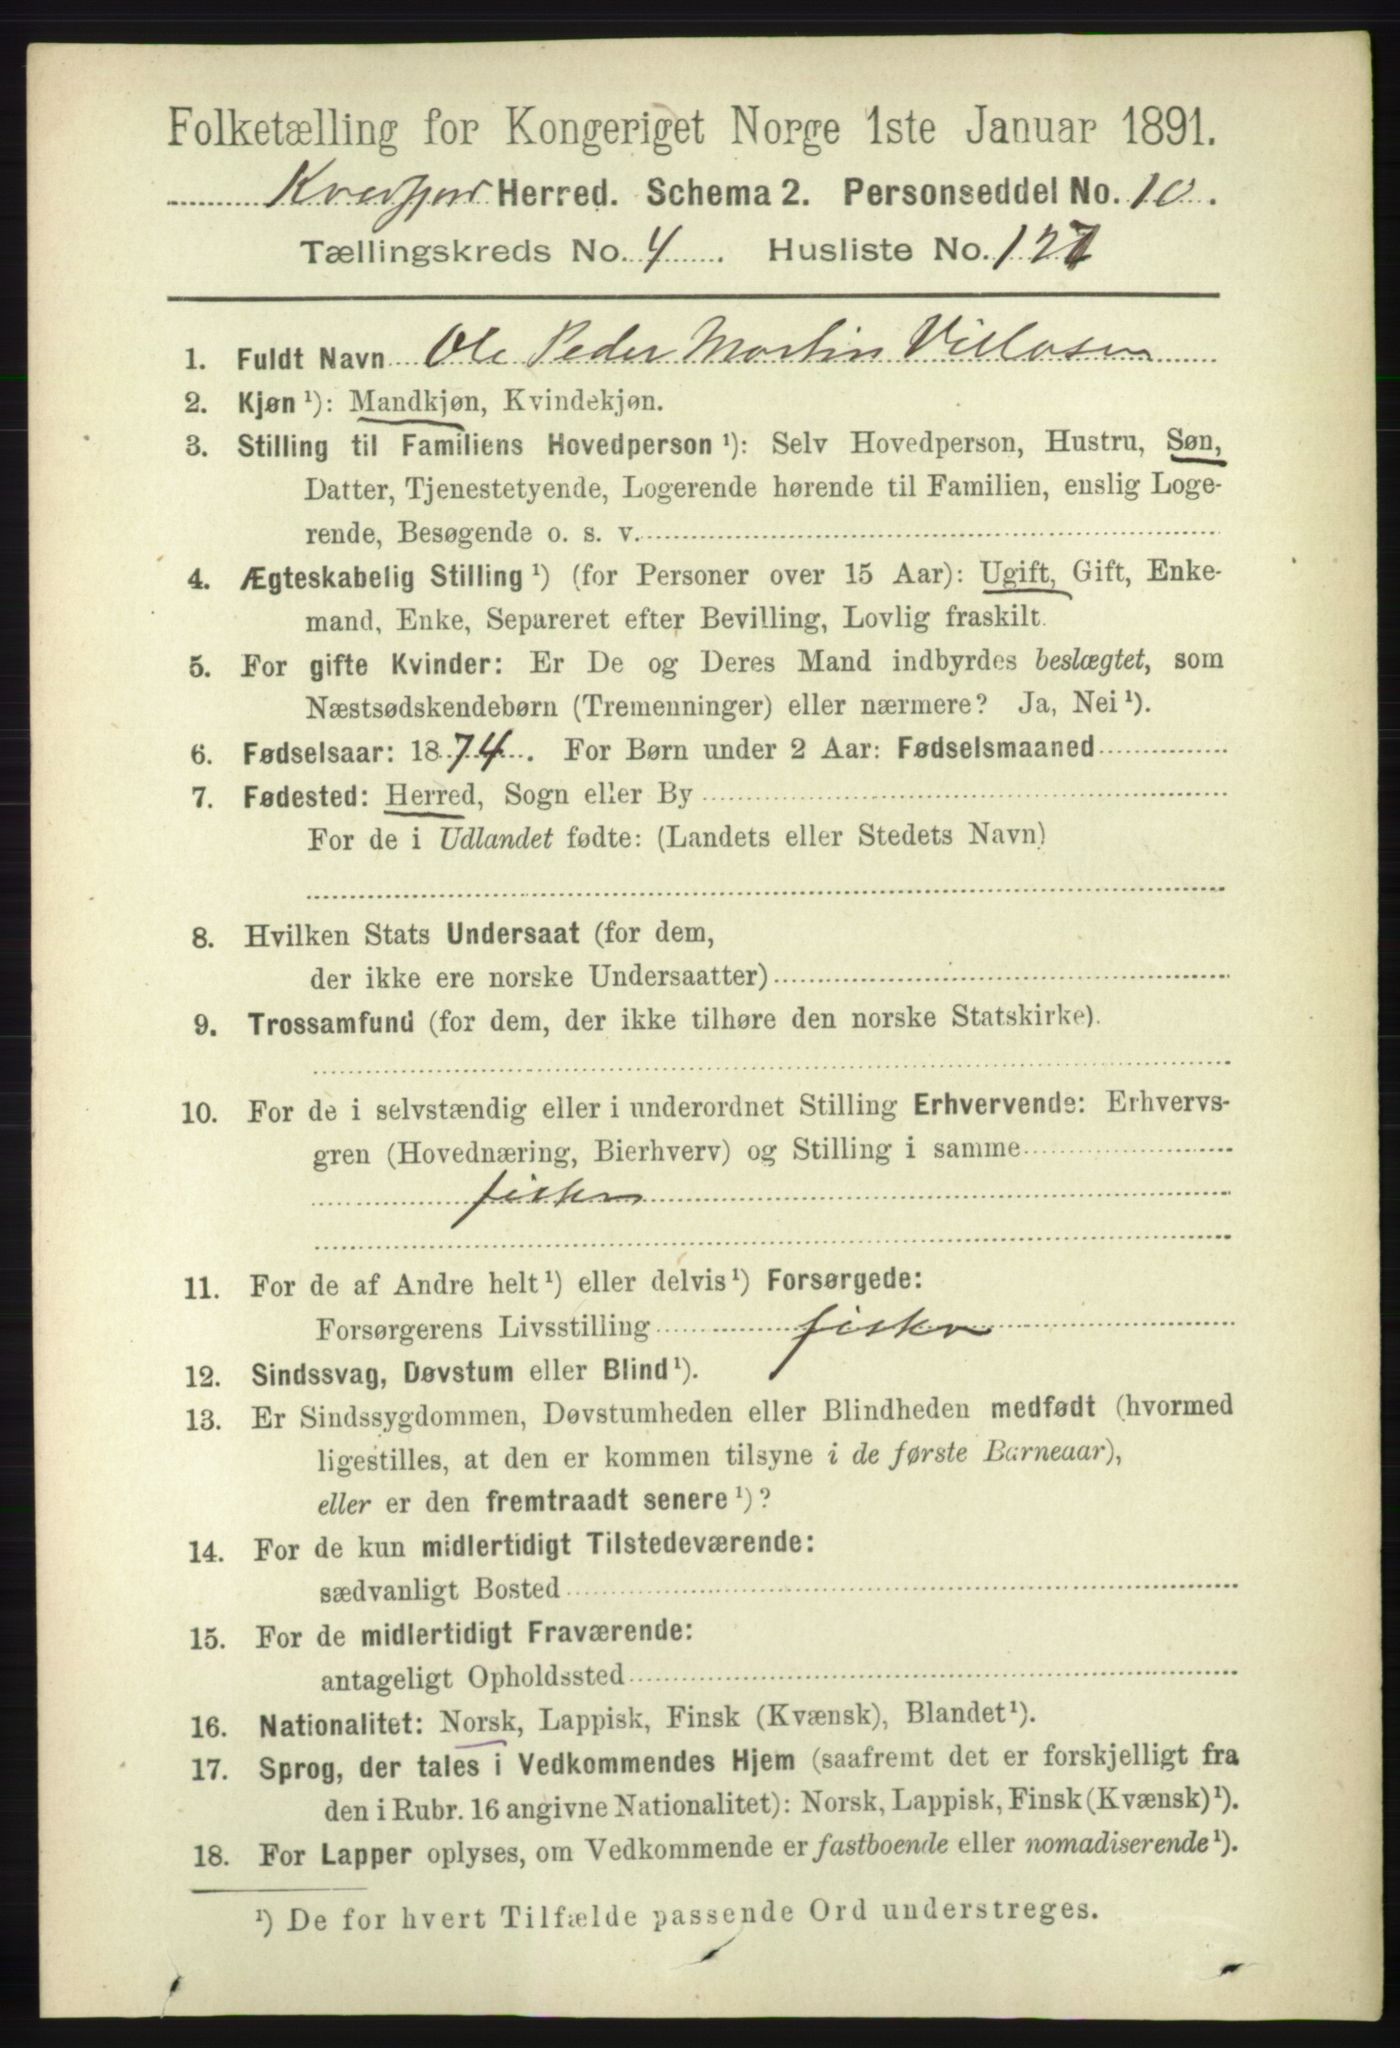 Folketælling for Kongeriget Norge 1ste Januar 1891.
Kvæfjord Herred. Schema 2. Personseddel No. 10.
Tællingskreds No. 4. Husliste No. 127
1. Fuldt Navn Ole Peder Martin Villasen
2. Kjøn ¹): Mandkjøn, Kvindekjøn.
3. Stilling til Familiens Hovedperson ¹): Selv Hovedperson, Hustru, Søn,
Datter, Tjenestetyende, Logerende hørende til Familien, enslig Loge-
rende, Besøgende o. s. v.
4. Ægteskabelig Stilling ¹) (for Personer over 15 Aar): Ugift, Gift, Enke-
mand, Enke, Separeret efter Bevilling, Lovlig fraskilt.
5. For gifte Kvinder: Er De og Deres Mand indbyrdes beslægtet, som
Næstsødskendebørn (Tremenninger) eller nærmere? Ja, Nei ¹).
6. Fødselsaar: 1874. For Børn under 2 Aar: Fødselsmaaned
7. Fødested: Herred, Sogn eller By
For de i Udlandet fødte: (Landets eller Stedets Navn)
8. Hvilken Stats Undersaat (for dem,
der ikke ere norske Undersaatter)
9. Trossamfund (for dem, der ikke tilhøre den norske Statskirke).
10. For de i selvstændig eller i underordnet Stilling Erhvervende: Erhvervs-
gren (Hovednæring, Bierhverv) og Stilling i samme
fisker
11. For de af Andre helt ¹) eller delvis ¹) Forsørgede:
Forsørgerens Livsstilling fisker
12. Sindssvag, Døvstum eller Blind ¹).
13. Er Sindssygdommen, Døvstumheden eller Blindheden medfødt (hvormed
ligestilles, at den er kommen tilsyne i de første Barneaar),
eller er den fremtraadt senere ¹)?
14. For de kun midlertidigt Tilstedeværende:
sædvanligt Bosted
15. For de midlertidigt Fraværende:
antageligt Opholdssted
16. Nationalitet: Norsk, Lappisk, Finsk (Kvænsk), Blandet ¹).
17. Sprog, der tales i Vedkommendes Hjem (saafremt det er forskjelligt fra
den i Rubr. 16 angivne Nationalitet): Norsk, Lappisk, Finsk (Kvænsk) ¹).
18. For Lapper oplyses, om Vedkommende er fastboende eller nomadiserende ¹).
¹) De for hvert Tilfælde passende Ord understreges.